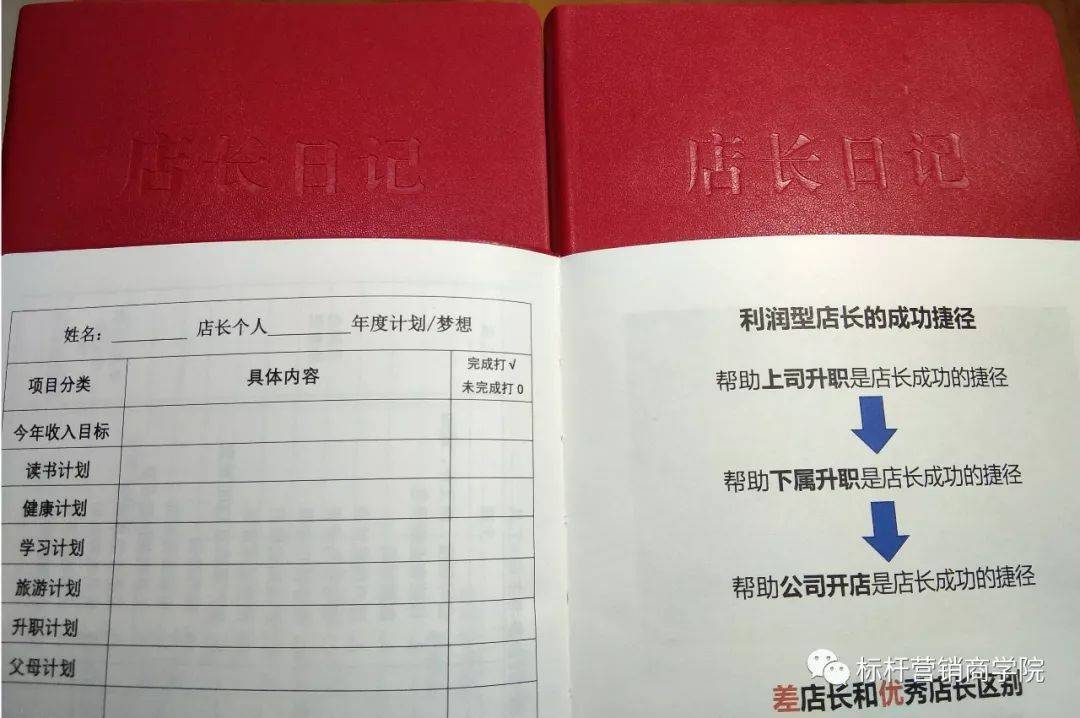 店长日记
店长日记
姓名：________ 店长个人________年度计划/梦想
项目分类
具体内容
完成打√
未完成打0
今年收入目标
读书计划
健康计划
学习计划
旅游计划
升职计划
父母计划
利润型店长的成功捷径
帮助上司升职是店长成功的捷径
帮助下属升职是店长成功的捷径
帮助公司开店是店长成功的捷径
差店长和优秀店长区别
标杆营销商学院